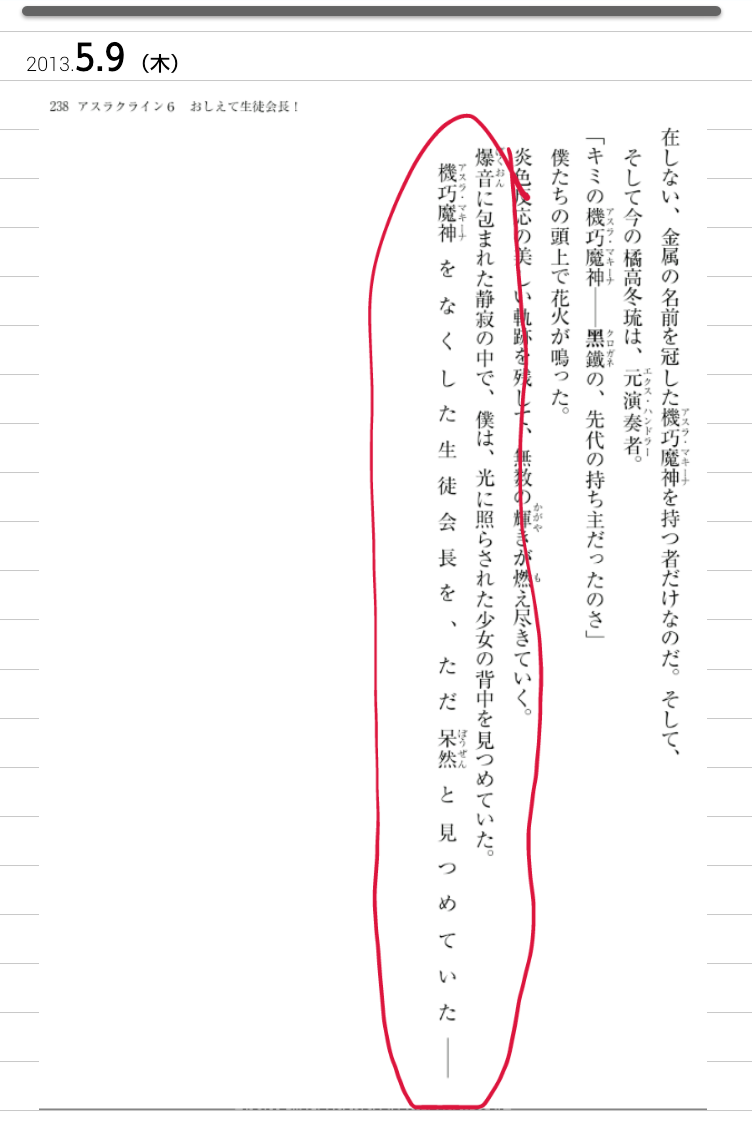 2013.5.9（木）
238 アスラクライン6 おしえて生徒会長！
在しない、金属の名前を冠した機巧魔神を持つ者だけなのだ。そして、
アスラ・マキーナ
そして今の橘高冬琉は、元演奏者。
エクス・ハンドラー
「キミの機巧魔神――黑鐵の、先代の持ち主だったのさ」
アスラ・マキーナ
クロガネ
僕たちの頭上で花火が鳴った。
炎色反応の美しい軌跡を残して、無数の輝きが燃え尽きていく。
かがや
も
爆音に包まれた静寂の中で、僕は、光に照らされた少女の背中を見つめていた。
機巧魔神をなくした生徒会長を、ただ呆然と見つめていた――
アスラ・マキーナ
ぼうぜん